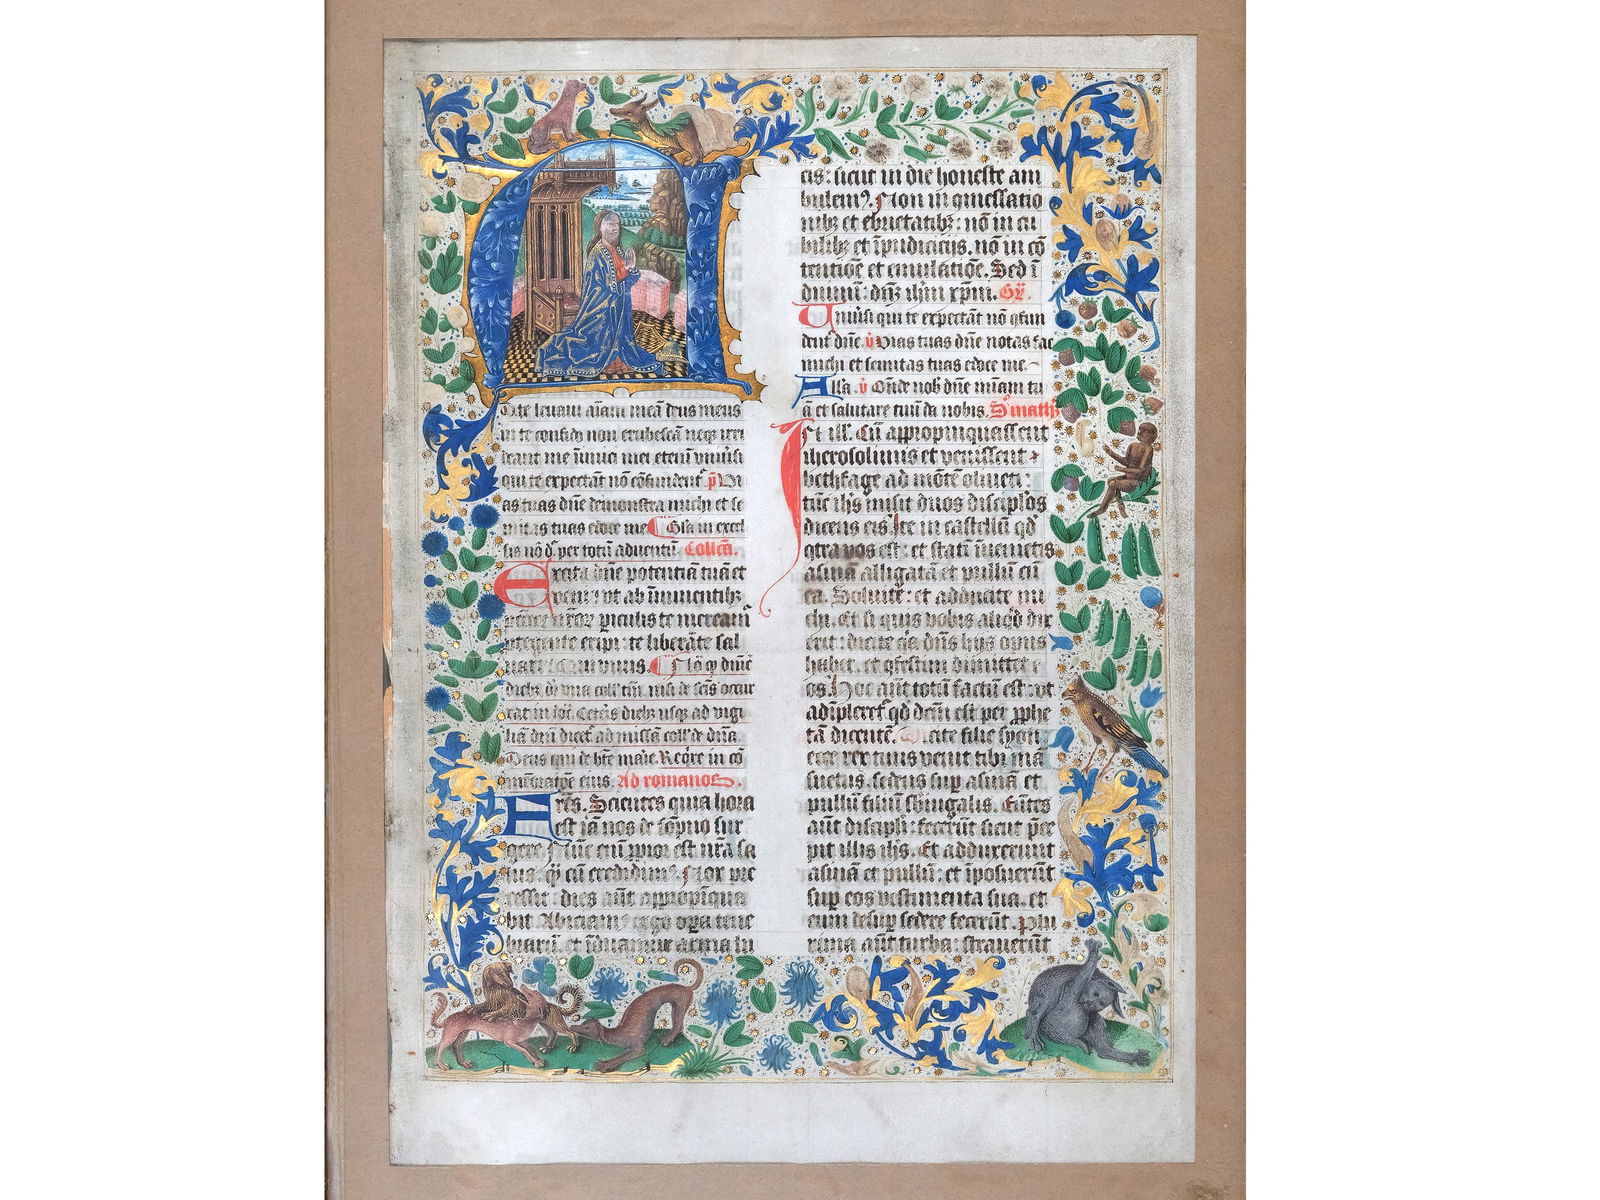 A
D te levavi aīam meā deus meus
in te confido non erubescā neqȝ irri
deant me īimici mei etenī vniūsi
qui te expectāt nō cōfundentᷣ p̄s Vi
as tuas dn̄e demonstra michi et se
mitas tuas edoce me Gl̄a in excel
sis nō dr̄ per totū aduentū Collcā.
Excita dn̄e potentiā tuā et
veni: vt ab īminentibȝ
pcc̄oꝝ nr̄oꝝ piculis te mereamᷣ
ptegente eripi: te liberāte sal
uari: Qui viuis. Nō qȝ dnīc̄
diebȝ dr̄ vna coll' tm̄. nisi de sc̄is occur
rat in loc̄. Ceteris diebȝ usqȝ ad vigi
liā dn̄i dicetᷣ ad missam coll' de dn̄ica
Deus qui de bt̄e marie. Reqre in cō
memoratiōe eius. Ad romanos.
Fr̄es. Scientes quia hora
est iā nos de sōpno sur
gere Nūc enī ꝓpior est nr̄a sa
lus: qȝ cū credidimꝰ. Nox pre
cessit: dies aūt appropīqua
bit Abiciamꝰ ergo opa tene
brarū. et īduamur arma lu
cis: sicut in die honeste am
bulemꝰ. Non in ꝯmessatio
nibȝ et ebrietatibȝ: nō in cu
bilibȝ et īpudicicijs. nō in cō
tentiōe et emulatiōe. Sed ī
duimī: dn̄m ihm̄ xpm̄. Gr̄.
Vniūsi qui te expectāt nō ꝯfun
dentᷣ dn̄e. v̄ Vias tuas dn̄e notas fac
michi et semitas tuas edoce me.
All'a. v̄ Onde nob̄ dn̄e mīam tu
ā et salutare tuū da nobis. S. math'
In ill'. Cū appropinquassent
iherosolimis et venissent
bethfage ad mōtē oliueti:
tūc ih̄s misit duos discip̄los
dicens eis. Ite in castellū qd̄
ꝯtra vos est: et statī īuenietis
asinā alligatā et pullū cū
ea. Soluite: et adducite mi
chi. Et si quis vobis aliqd̄ dix
erit: dicite qa dn̄s hijs opus
habet. et ꝯfestim dimittet e
os. Hoc aūt totū factū est: vt
adīpleretᷣ qd̄ dc̄m est per ꝓphe
tā dicentē. Dicite filie syon:
ecce rex tuus venit tibi mā
suetus. sedens sup asinā et
pullū filiū sbiugalis. Eūtes
aūt discip̄li: fecerūt sicut p̄ce
pit illis ih̄s. Et adduxerunt
asinā et pullū: et īposuerūt
sup eos vestimenta sua. et
eum desup sedere fecerūt. Plu
rima aūt turba: strauerūt